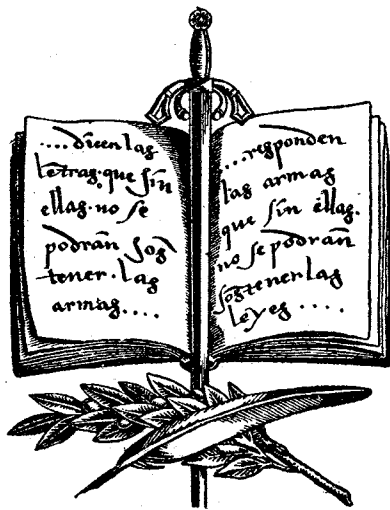 ....dizen las
letras·que sin
ellas·no se
podrán sos
tener·las
armas....
...responden
las armas
que sin ellas·
no se podrán
sostener las
leyes....